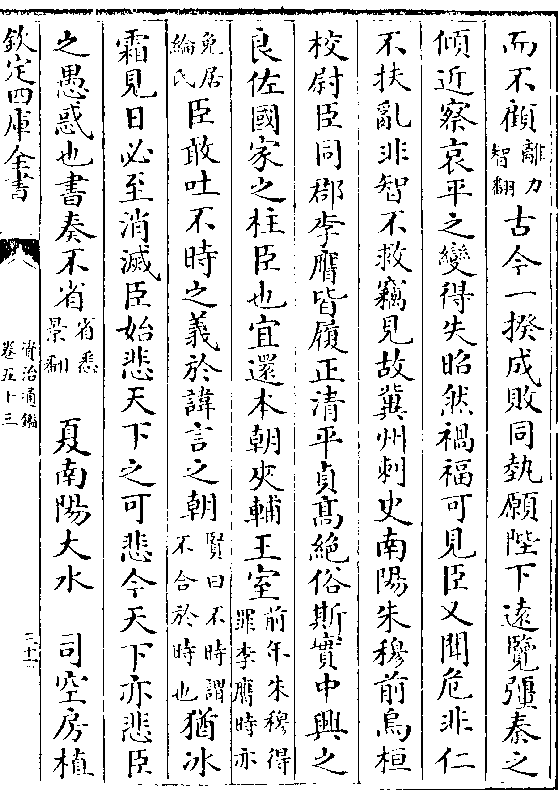 而不顧離力智翻古今一揆成敗同埶願陛下遠覽彊秦之
傾近察哀平之變得失昭然禍福可見臣又聞危非仁
不扶亂非智不救竊見故冀州刺史南陽朱穆前烏桓
校尉臣同郡李膺皆履正清平貞髙絶俗斯實中興之
良佐國家之柱臣也宜還本朝夾輔王室前年朱穆得罪李膺時亦
免居綸氏臣敢吐不時之義於諱言之朝賢曰不時謂不合於時也猶冰
霜見日必至消滅臣始悲天下之可悲今天下亦悲臣
之愚惑也書奏不省省悉景翻 夏南陽大水 司空房植
欽定四庫全書 資治通鑑卷五十三 三十二